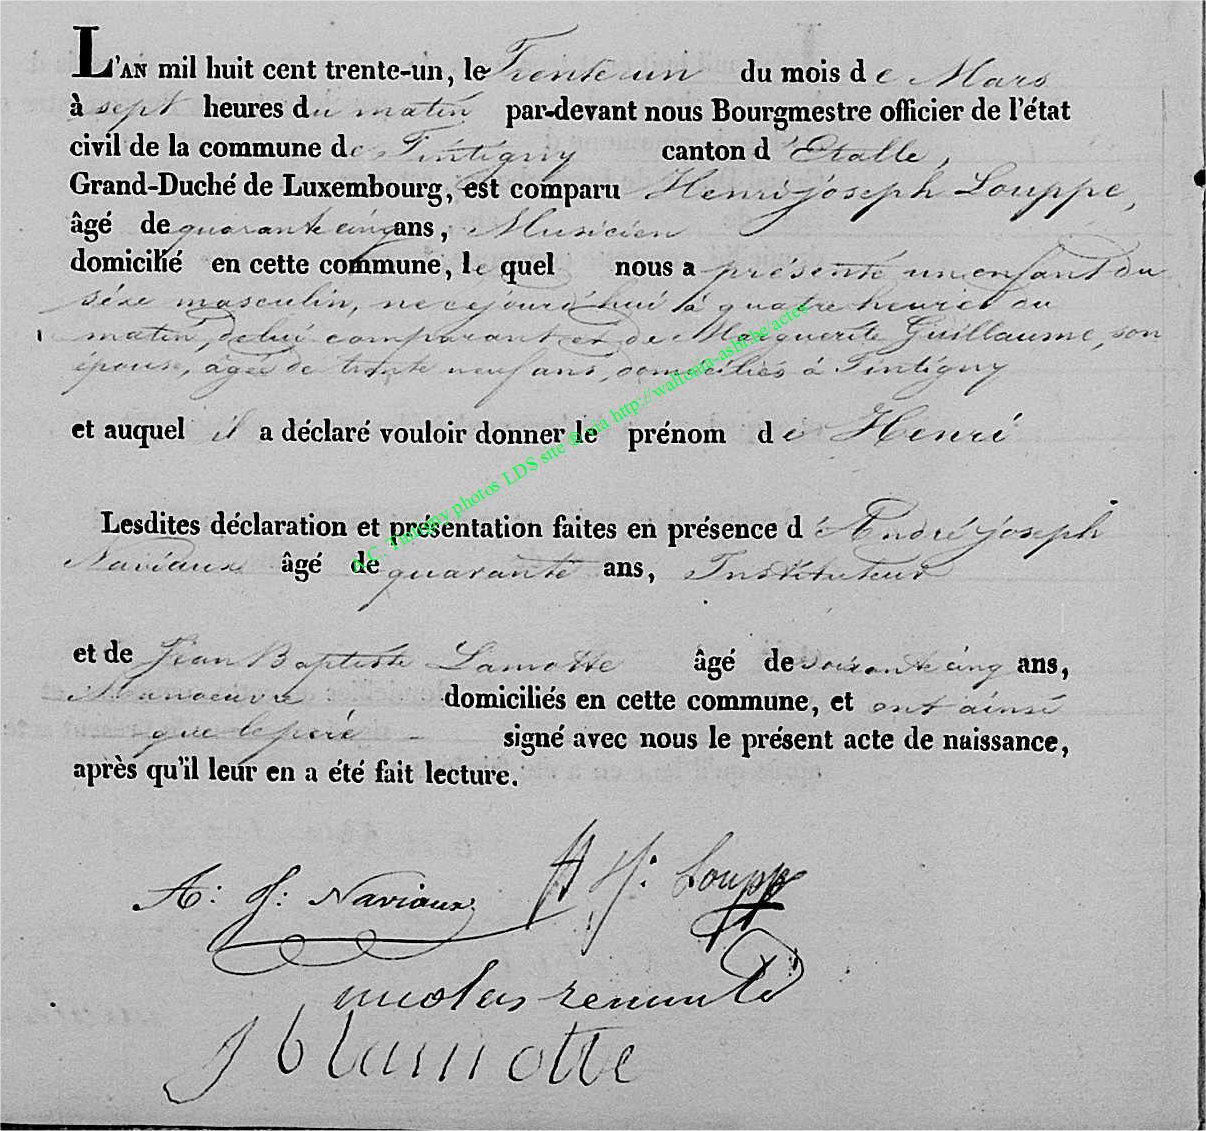 L'AN mil huit cent trente-un, le Trente un du mois de Mars
à sept heures du matin par-devant nous Bourgmestre officier de l'état
civil de la commune de Tintigny canton d'Etalle,
Grand-Duché de Luxembourg, est comparu Henri joseph Louppe,
âgé de quarante cinq ans, Musicien
domicilié en cette commune, lequel nous a présenté un enfant du
séxe masculin, né cejourd'hui à quatre heures du
matin, de lui comparant et de Marguerite Guillaume, son
épouse, agée de trente neuf ans, domiciliés à Tintigny
et auquel il a déclaré vouloir donner le prénom de Henri
Lesdites déclaration et présentation faites en présence d'André joseph
Naviaux âgé de quarante ans, Instituteur
et de Jean Baptiste Lamotte âgé de soixante cinq ans,
Manoeuvre domiciliés en cette commune, et ont ainsi
que le père signé avec nous le présent acte de naissance,
après qu'il leur en a été fait lecture.
A: J: Naviaux H. J. Loupp
nicolas
J B lamotte
Tintigny photos LDS site via http://wallonia-asbl.be/actes